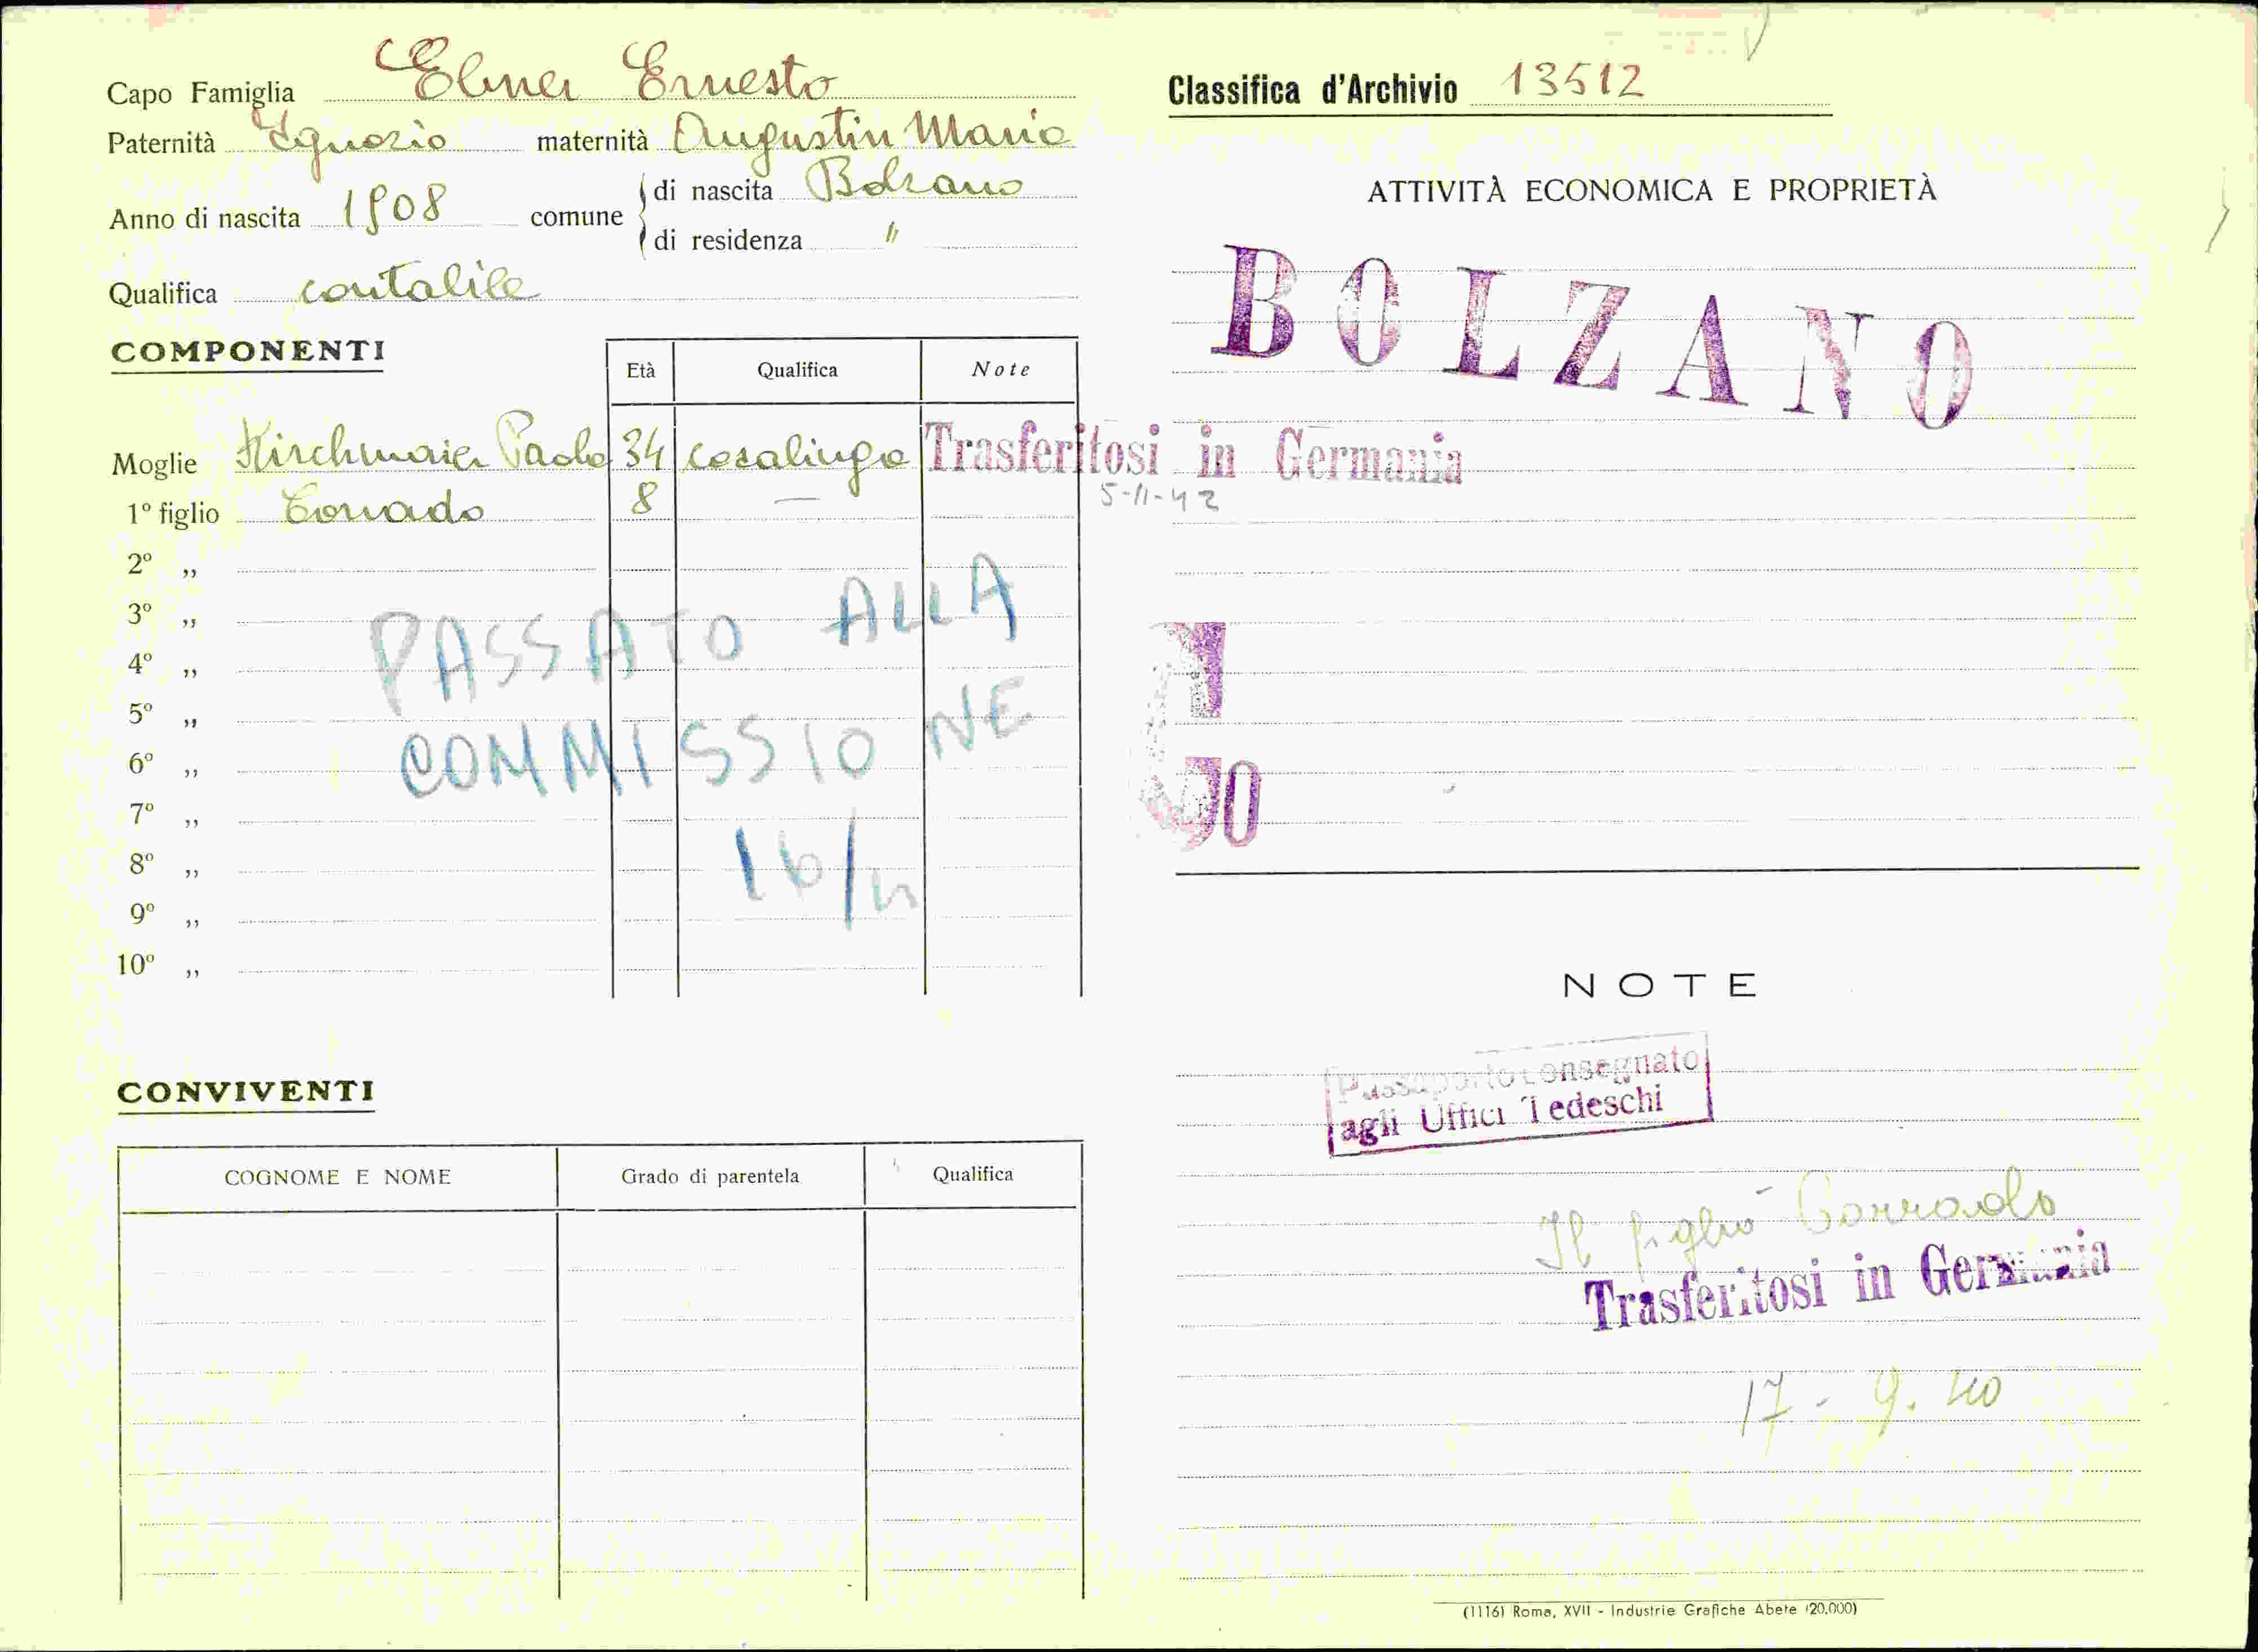 Capo Famiglia Ebner Ernesto
Paternità Ignazio maternità Augustin Maria
Anno di nascita 1908 comune di nascita Bolzano
di residenza "
Qualifica contabile
COMPONENTI
Età Qualifica Note
Moglie Kirchmaier Paola 34 casalinga Trasferitosi in Germania
5-11-42
1º figlio Corrado 8 —
2º „
3º „
4º „
5º „
6º „
7º „
8º „
9º „
10º „
PASSATO ALLA
COMMISSIONE
CONVIVENTI
COGNOME E NOME Grado di parentela Qualifica
Classifica d'Archivio 13512
ATTIVITÀ ECONOMICA E PROPRIETÀ
BOLZANO
NOTE
Passaporto consegnato
agli Uffici Tedeschi
Il figlio Corrado
Trasferitosi in Germania
17-9.40
(1116) Roma, XVII - Industrie Grafiche Abete (20.000)